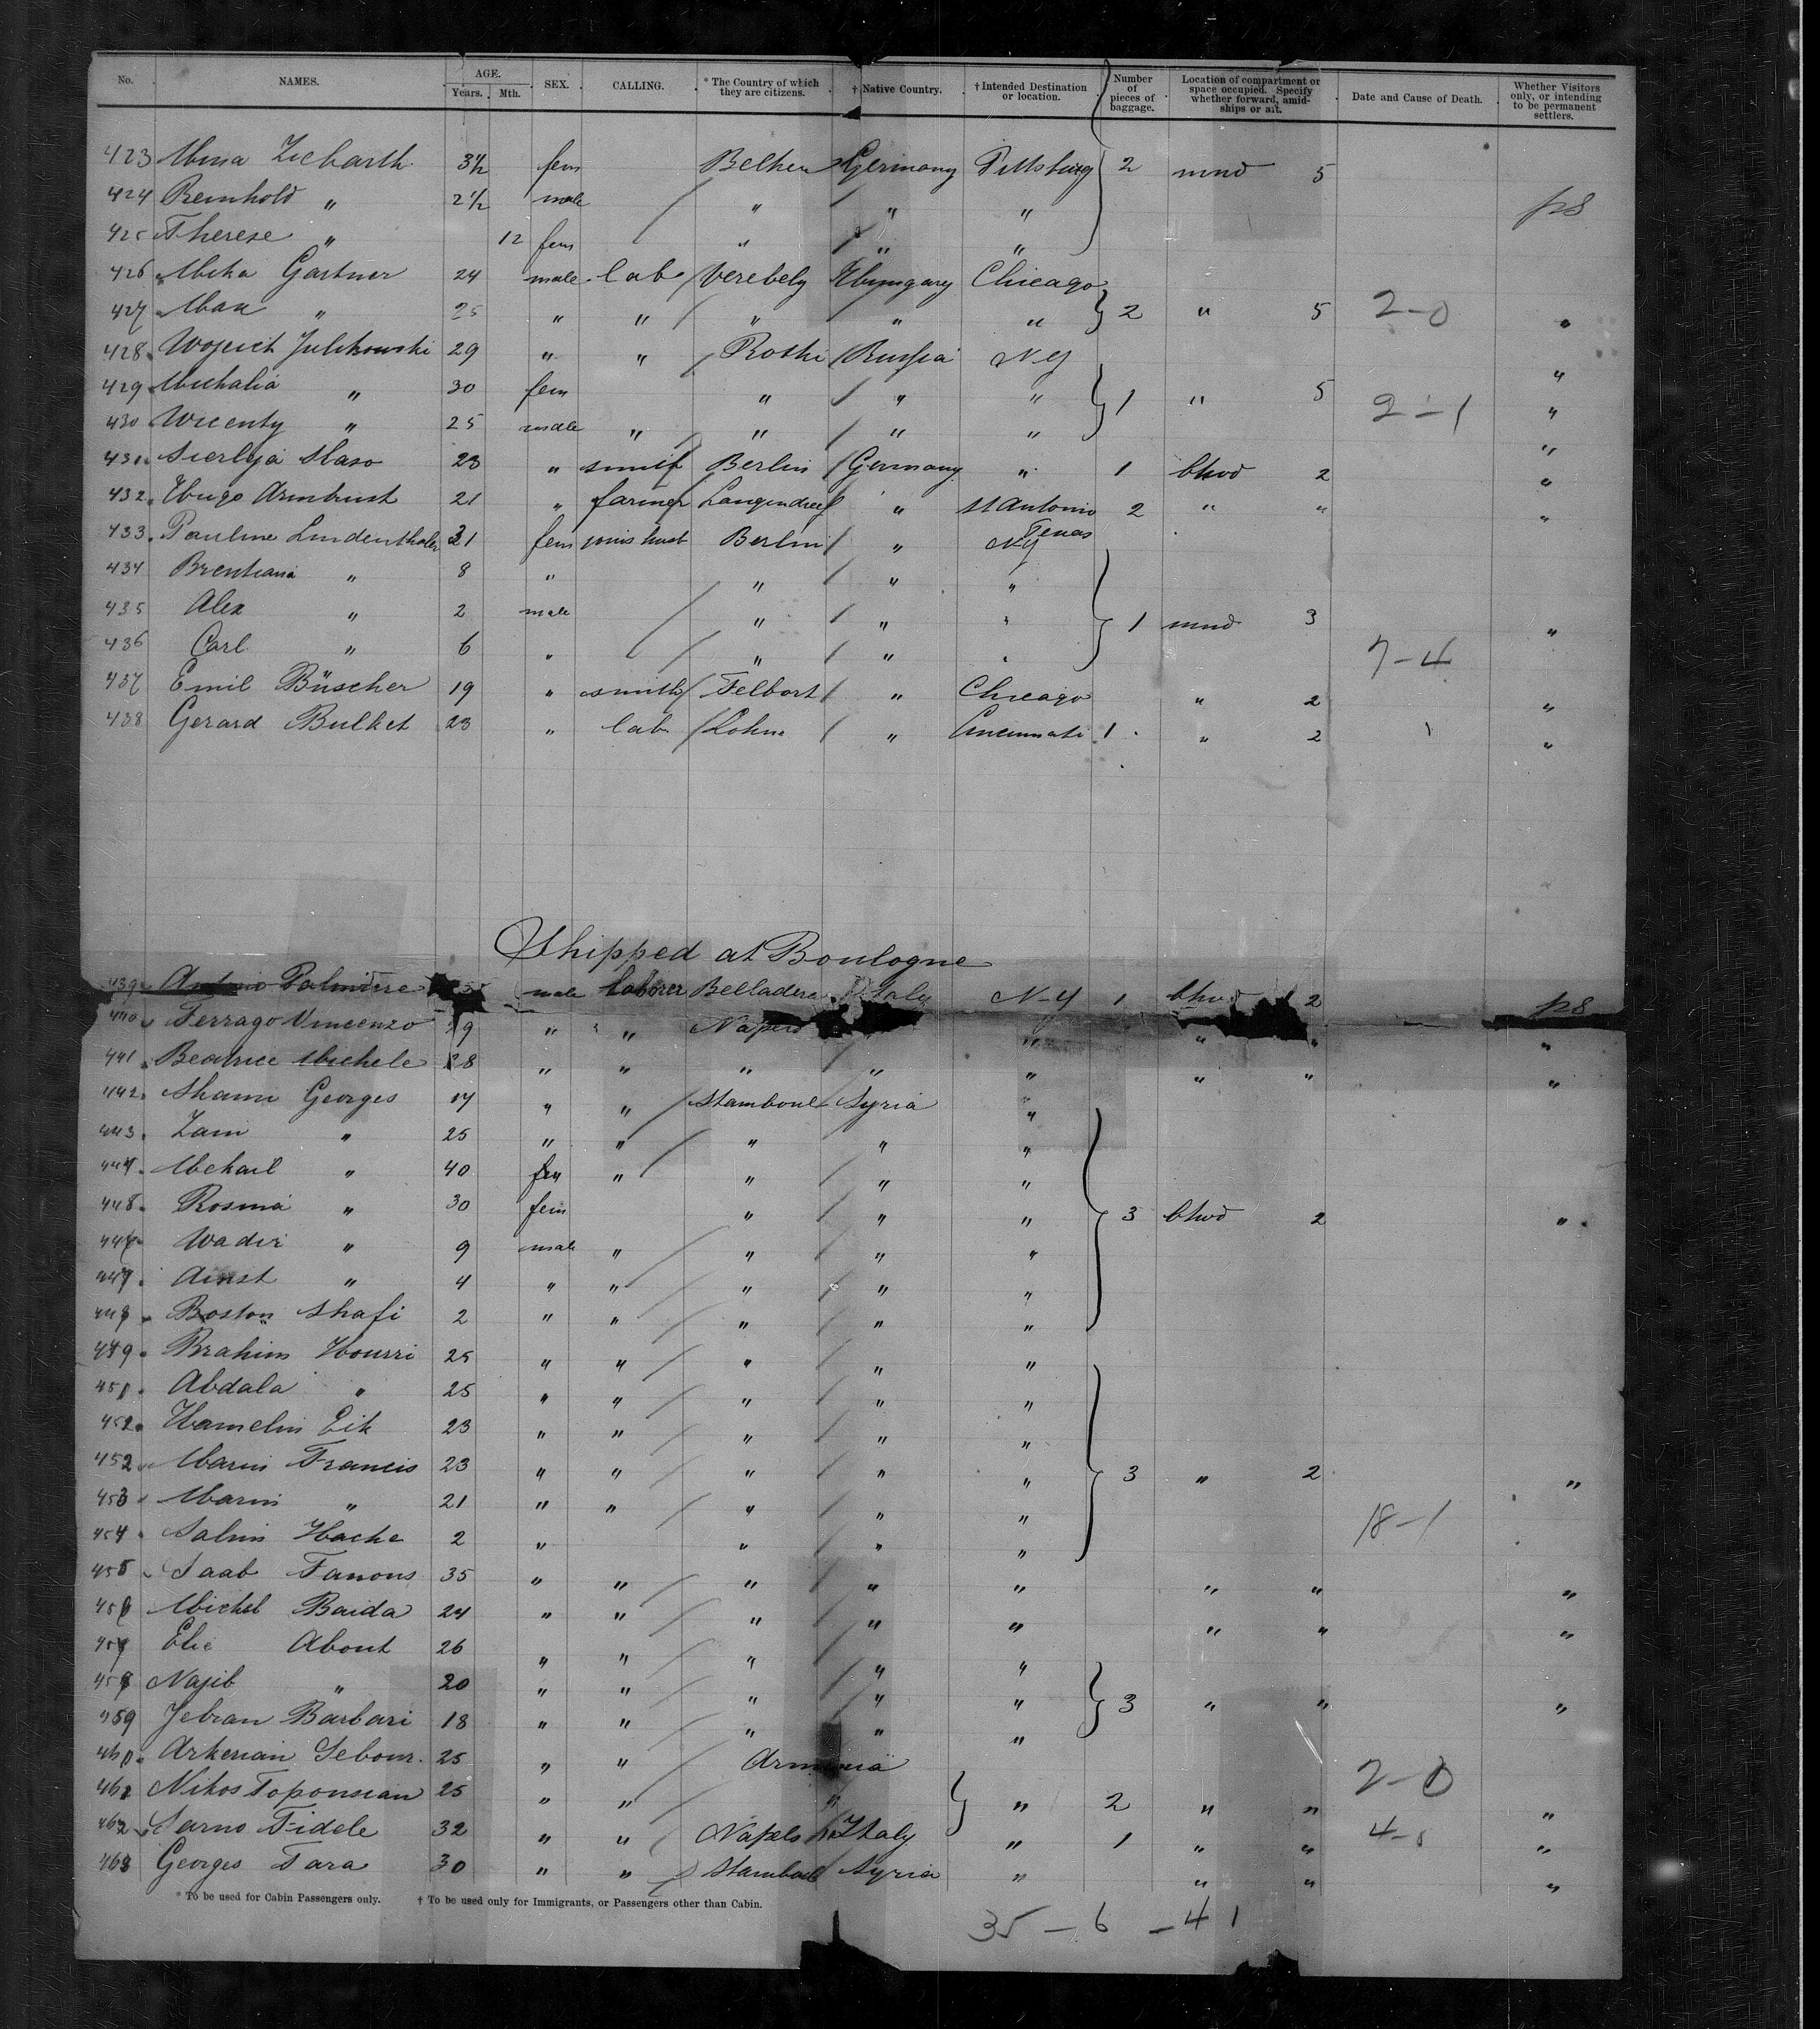 No. NAMES. AGE. Years. Mth. SEX. CALLING. * The Country of which they are citizens. † Native Country. † Intended Destination or location. Number of pieces of baggage. Location of compartment or space occupied. Specify whether forward, amidships or aft. Date and Cause of Death. Whether Visitors only, or intending to be permanent settlers.
423 Mina Ziebarth 3½ fem Germany Pittsburg 2 mnd 5
424 Reinhold " 2½ male " " " ps
425 Therese " 12 fem " " "
426 Gartner 24 male lab Verebely Hungary Chicago
427 Max " 25 " " " " " 2 " 5 2-0 "
428 Wojcich Julikowski 29 " " Rothi Russia NY "
429 Michalia " 30 fem " " " 1 " 5 2-1 "
430 Wicenty " 25 male " " " " "
431 Maso 23 " Berlin Germany " 1 bhwd 2 "
432 Hugo Armbrust 21 " farmer Langendreef " St Antonio Texas 2 " " "
433 Pauline Lindenthaler 31 fem Berlin " NY
434 " 8 " " " "
435 Alex " 2 male " " " 1 mnd 3 "
436 Carl " 6 " " " " 7-4
437 Emil Büscher 19 " smith Felbert " Chicago " 2 "
438 Gerard Bulket 23 " lab Lohne " Cincinnati 1 " 2 "
Shipped at Boulogne
439 Antonio Palmiere male laborer Belladera Italy N-Y 1 bhwd 2 ps
440 Ferrago Vincenzo 19 " " " " " "
441 Beatrice Michele 28 " " " " " " " "
442 Shami Georges 17 " " Stamboul Syria "
443 Zani " 25 " " " " "
444 Michail " 40 fem " " " "
445 Rosina " 30 fem " " " 3 bhwd 2 "
446 Wadir " 9 male " " " "
447 Ainst " 4 " " " " "
448 Boston Shafi 2 " " " " "
449 Brahim Hourri 25 " " " " "
451 Abdala " 25 " " " " "
452 Hamelin Eik 23 " " " " "
452 Marin Francis 23 " " " " " 3 " 2 "
453 Marin " 21 " " " " " 18-1
454 Salim Hache 2 " " " "
455 Saab Fanous 35 " " " " " " " "
456 Michel Baida 24 " " " " " " " "
457 Elie About 26 " " " " "
458 Najib " 20 " " " " " 3 " " "
459 Jebran Barbari 18 " " " " "
460 Arkerian Sebour. 25 " " Armenia 2-0
461 Nikos Toponsian 25 " " " " 2 " " "
462 Sarno Fidele 32 " " Napels Italy " 1 " " "
463 Georges Tara 30 " " Stamboul Syria " " " "
* To be used for Cabin Passengers only. † To be used only for Immigrants, or Passengers other than Cabin.
35 - 6 - 41